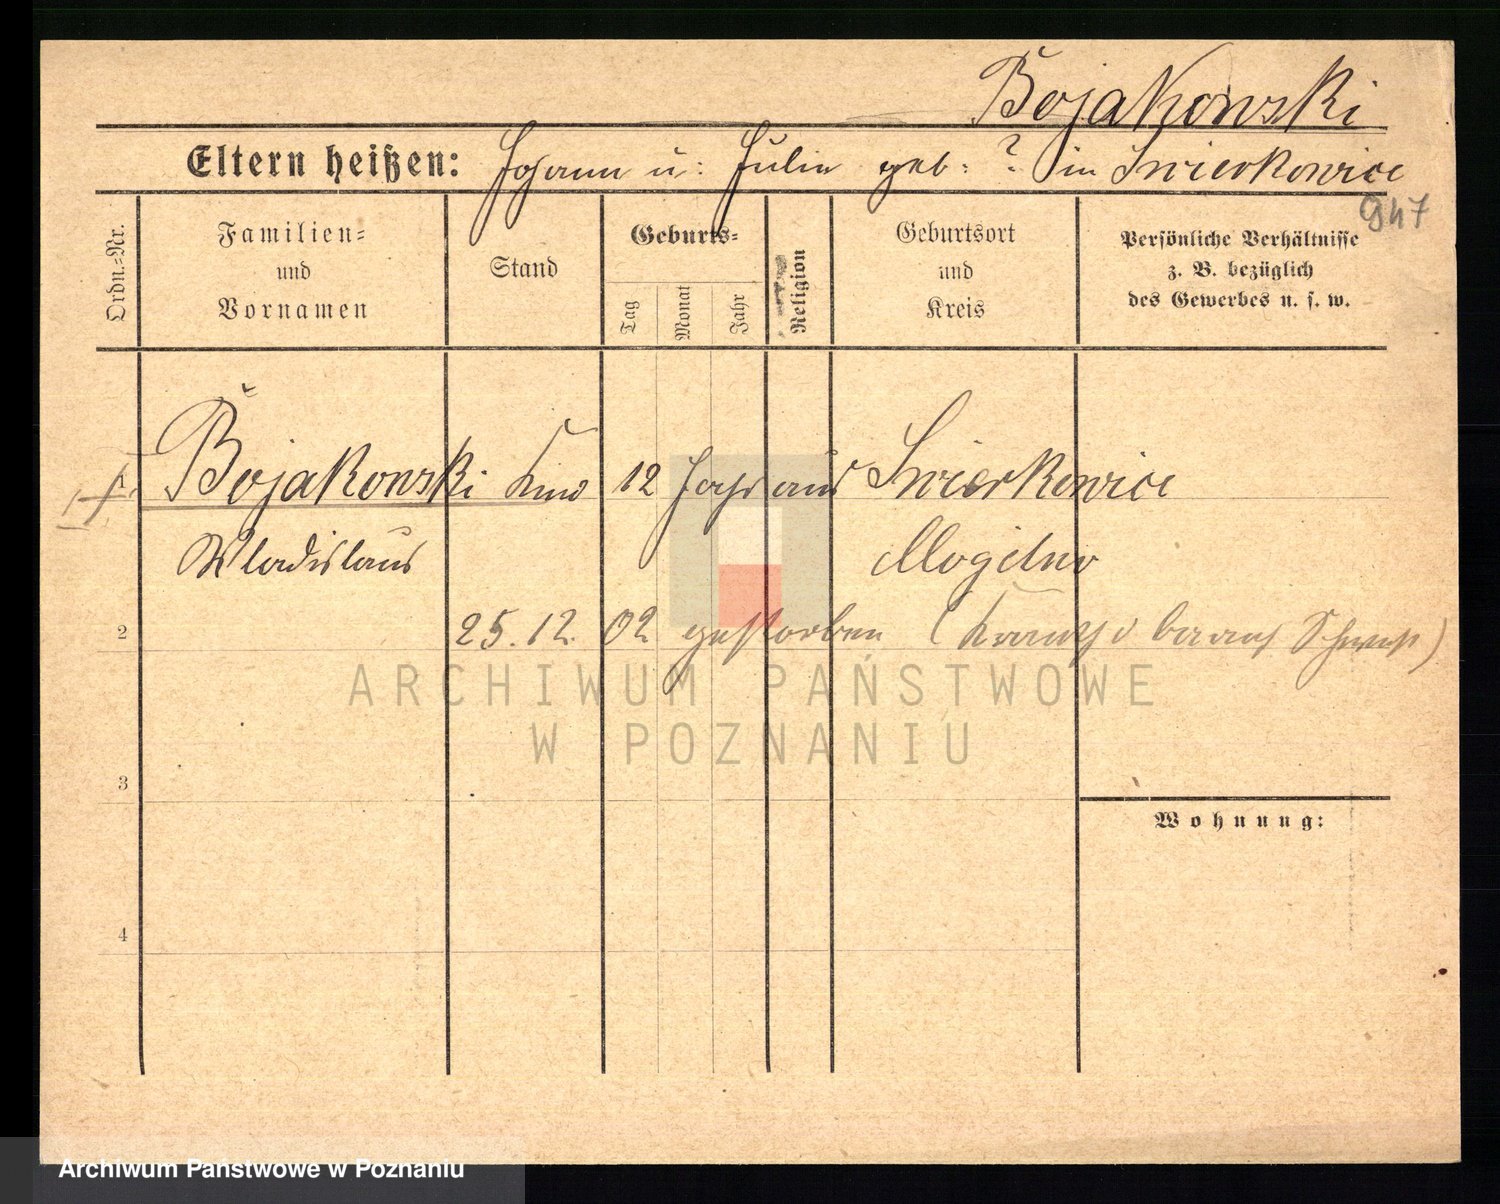 Bojakowski
Eltern heißen: Johann u: Julie geb: ? in Swierkowice
947
Ordn.-Nr.
Familien-
und
Vornamen
Stand
Geburts-
Tag
Monat
Jahr
Religion
Geburtsort
und
Kreis
Persönliche Verhältnisse
z. B. bezüglich
des Gewerbes u. s. w.
1 Bojakowski Kind 12 Jahr aus Swierkowice
Wladislaus Mogilno
2 25.12. 02 gestorben
ARCHIWUM PAŃSTWOWE
W POZNANIU
3
Wohnung:
4
Archiwum Państwowe w Poznaniu